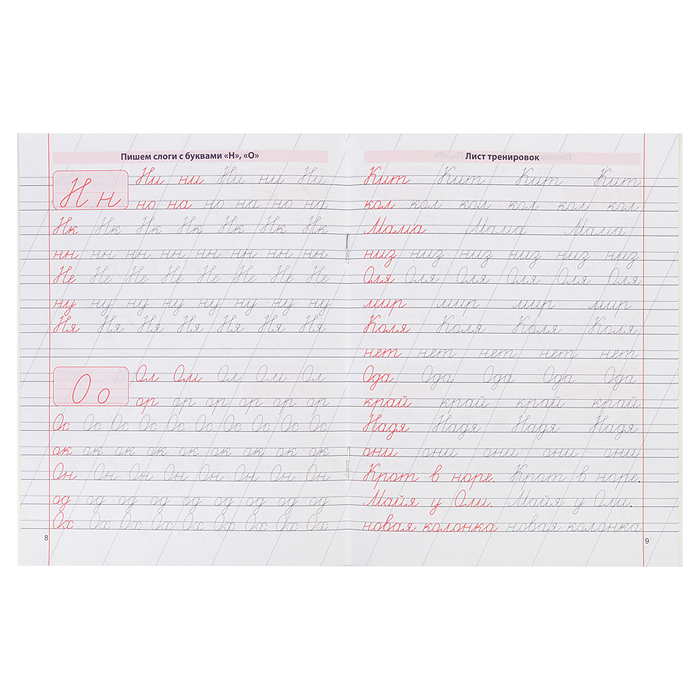 Пишем слоги с буквами «Н», «О»
Н н
Ни ни Ни ни Ни
но на но на но на
Нк Нк Нк Нк Нк Нк Нк
нн нн нн нн нн нн нн нн
Не Не Не Не Не Не Не
ну ну ну ну ну ну ну ну
Ня Ня Ня Ня Ня Ня Ня
О о
Ол Ом Ол Ом Ол
ор ор ор ор ор ор
Ос Ос Ос Ос Ос Ос Ос Ос Ос Ос
ок ок ок ок ок ок ок ок ок
Он Он Он Он Он Он Он Он
од од од од од од од од од
Ох Ох Ох Ох Ох Ох Ох Ох
8
Лист тренировок
Кит Кит Кит Кит
кол кол кол кол кол кол
Мама Мама Мама
низ низ низ низ низ низ
Оля Оля Оля Оля Оля Оля
мир мир мир мир
Коля Коля Коля Коля
нет нет нет нет нет
Ода Ода Ода Ода Ода
край край край край
Надя Надя Надя Надя
они они они они они
Крот в норе. Крот в норе.
Майя у Оли. Майя у Оли.
новая колонка новая колонка
9